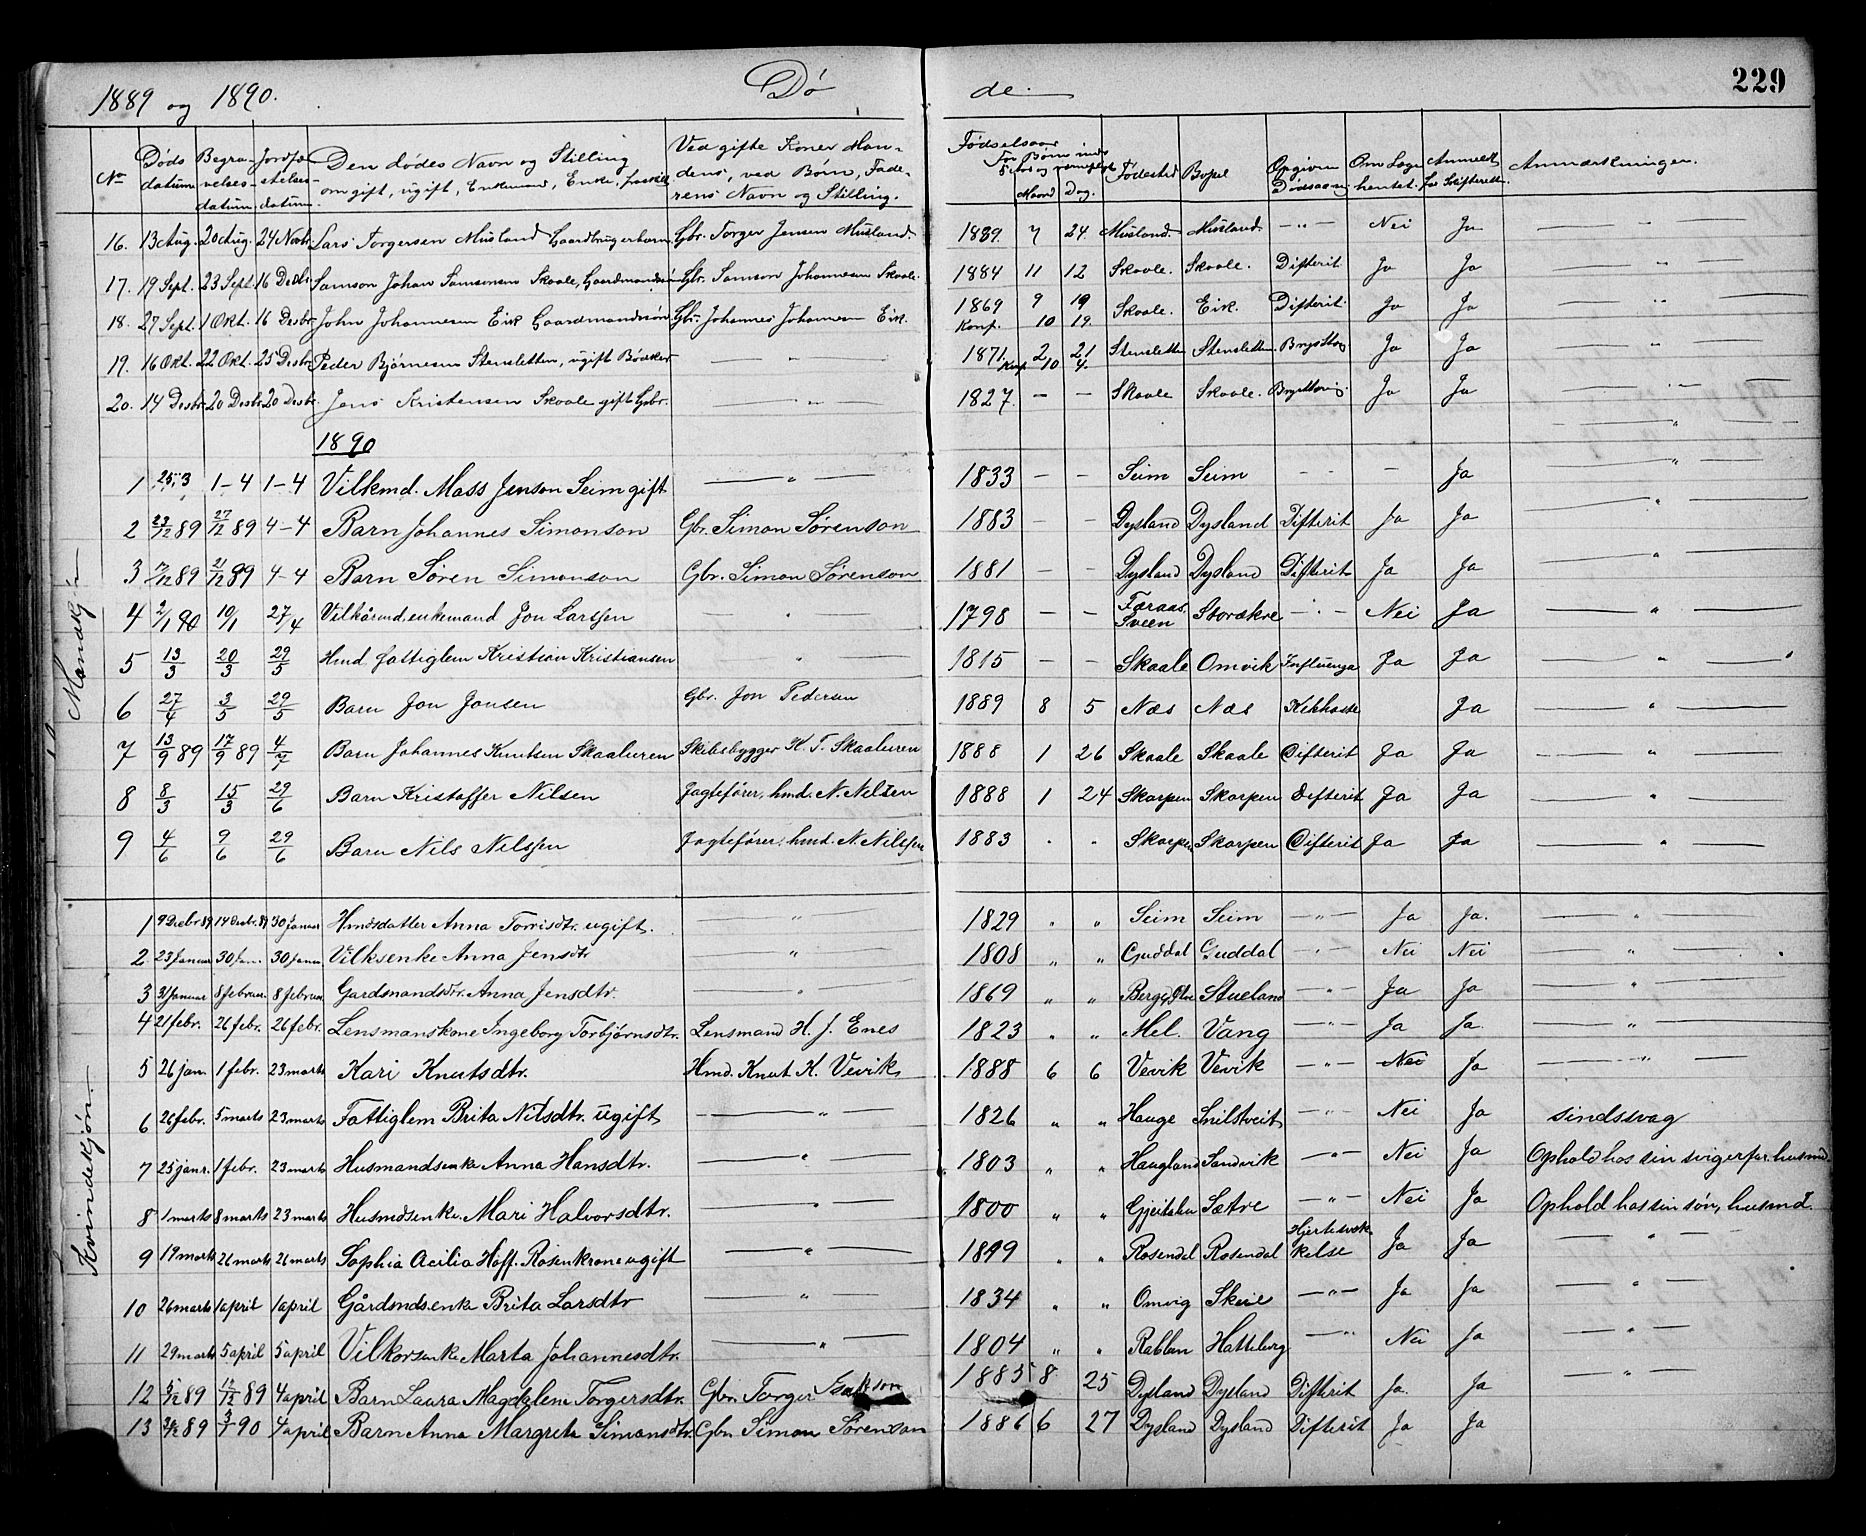 1889 og 1890. Dø de. 229
No Døds datum. Begravelses datum. Jordfæstelses datum. Den dødes Navn og Stilling om gift, ugift, Enkemand, Enke, fraskilt Ved gifte Koner Mandens, ved Børn, Faderens Navn og Stilling. Fødselsaar For Børn inds Maaned Dag. Fødested Bopel Opgiven Dødsaarsag Om Læge hentet. Anmeldt for Skifteretten Anmærkninger.
16. 13 Aug. 20 Aug. 24 Novbr. Lars Torgersen Musland Gaardbrugerbarn Gbr. Torger Jensen Musland. 1889 7 24. Musland. Musland - " - Nei Ja — " —
17. 19 Sept. 23 Sept. 16 Desbr. Samson Johan Samsonsen Skaale, Gaardmandssøn Gbr. Samson Johannesen Skaale. 1884 11 12 Skaale. Skaale. Difterit. Ja Ja — " —
18. 27 Sept. 1 Okt. 16 Desbr. John Johannesen Eik Gaardmandssøn Gbr. Johannes Johannesen Eik. 1869 9 19 Skaale. Eik. Difterit. Ja Ja — " —
Konf. 10 19.
19. 16 Okt. 22 Okt. 25 Desbr. Peder Bjørnesen Stensletten, ugift Bødker — " — 1871. 2 21 Stensletten Stensletten Brysttæ Ja Ja — " —
Konf. 10 4.
20. 14 Desbr. 20 Desbr. 20 Desbr. Jens Kristensen Skaale gift Gbr. — " — 1827. — — Skaale Skaale. Brysttæring. Ja Ja — " —
1890 — " —
Mandkjøn
1 25/3 1-4 1-4 Vilkmd. Mass Jenson Seim gift — " — 1833 — — Seim Seim - - - Ja — " —
2 23/12 89 27/12 89 4-4 Barn Johannes Simonson Gbr. Simon Sørenson 1883 — — Dysland Dysland Difterit Ja Ja — " —
3 7/12 89 21/12 89 4-4 Barn Søren Simonson Gbr. Simon Sørenson 1881 — — Dysland Dysland Difterit Ja Ja — " —
4 2/1 90 10/1 27/4 Vilkårmd. enkemand Jon Larssen — " — 1798 — — Færaas Sveen Storækre - " - Nei Ja — " —
5 13/3 20/3 29/5 Hmd. fattiglem Kristian Kristiansen — " — 1815 — — Skaale Omvik Influenza Ja Ja — " —
6 27/4 3/5 29/5 Barn Jon Jonsen Gbr. Jon Pedersen 1889 8 5 Næs Næs Kikhoste Ja — " —
7 13/9 89 17/9 89 4/7 Barn Johannes Knutsen Skaaluren Skibsbygger K. T. Skaaluren 1888 1 26 Skaale Skaale Difterit Ja Ja — " —
8 8/3 15/3 29/6 Barn Kristoffer Nilsen Jagtefører, hmd. N. Nilsen 1888 1 24 Skorpen Skorpen Difterit Ja Ja — " —
9 4/6 9/6 29/6 Barn Nils Nilssen Jagtefører, hmd. N. Nilssen 1883 " " Skorpen Skorpen Difterit Ja Ja — " —
Kvindekjøn
1 9 Decbr 89 14 Decbr. 89 30 Januar Hmdsdatter Anna Torrisdtr. ugift. — " — 1829 " " Seim Seim — " — Ja Ja. — " —
2 23 Januar 30 Jan. 30 Januar Vilksenke Anna Jensdtr — " — 1808 " " Guddal Guddal - " - Nei Nei — " —
3 31 Januar 8 februar 8 februar Gardsmandsdtr. Anna Jensdtr. — " — 1869 " " Berge Stueland - " - Ja Ja — " —
4 21 febr. 26 febr. 26 febr. Lensmanskone Ingeborg Torbjørnsdtr. Lensmand H. J. Enes 1823 " " Mel. Vang — " — Ja Ja. — " —
5 26 jan. 1 febr. 23 marts Kari Knutsdtr. Hmd. Knut K. Vevik 1888 6 6 Vevik Vevik — " — Nei Ja — " —
6 26 febr. 5 marts 23 marts Fattiglem Brita Nilsdtr. ugift — " — 1826 " " Hauge Snilstveit - " - Nei Ja sindssvag
7 25 janr. 1 febr. 23 marts Husmandsenke Anna Hansdtr. — " — 1803 " " Haugland Sandvik — " — Nei Ja Ophold hos sin svigerfar. husmd.
8 1 marts 8 marts 23 marts Husmdsenke. Mari Halvorsdtr. — " — 1800 " " Sætre — " — Nei Ja Ophold hos sin søn, husmd.
9 19 marts 26 marts 26 marts Sophia Acilia Hoff. Rosenkrone ugift — " — 1819 " Rosendal Rosendal Hjertesvækkelse Ja Ja — " —
10 26 marts 1 april 1 april Gårdmdsenke Brita Larsdtr — " — 1834 " " Omvig Skeie — " — Ja Ja — " —
11 29 marts 5 april 5 april Vilkorsenke Marta Johannesdtr. — " — 1804 " " Hatteberg — " — Nei Ja — " —
12 5/12 89 12/12 89 4 april Barn Laura Magdalena Torgersdtr. Gbr. Torger Isakson 1885 8 25 Dysland Dysland Difterit Ja. Ja — " —
13 89 3/1 90 4 april Barn Anna Margreta Simonsdtr. Gbr. Simon Sørenson 1886 6 27 Dysland Dysland Difterit Ja Ja